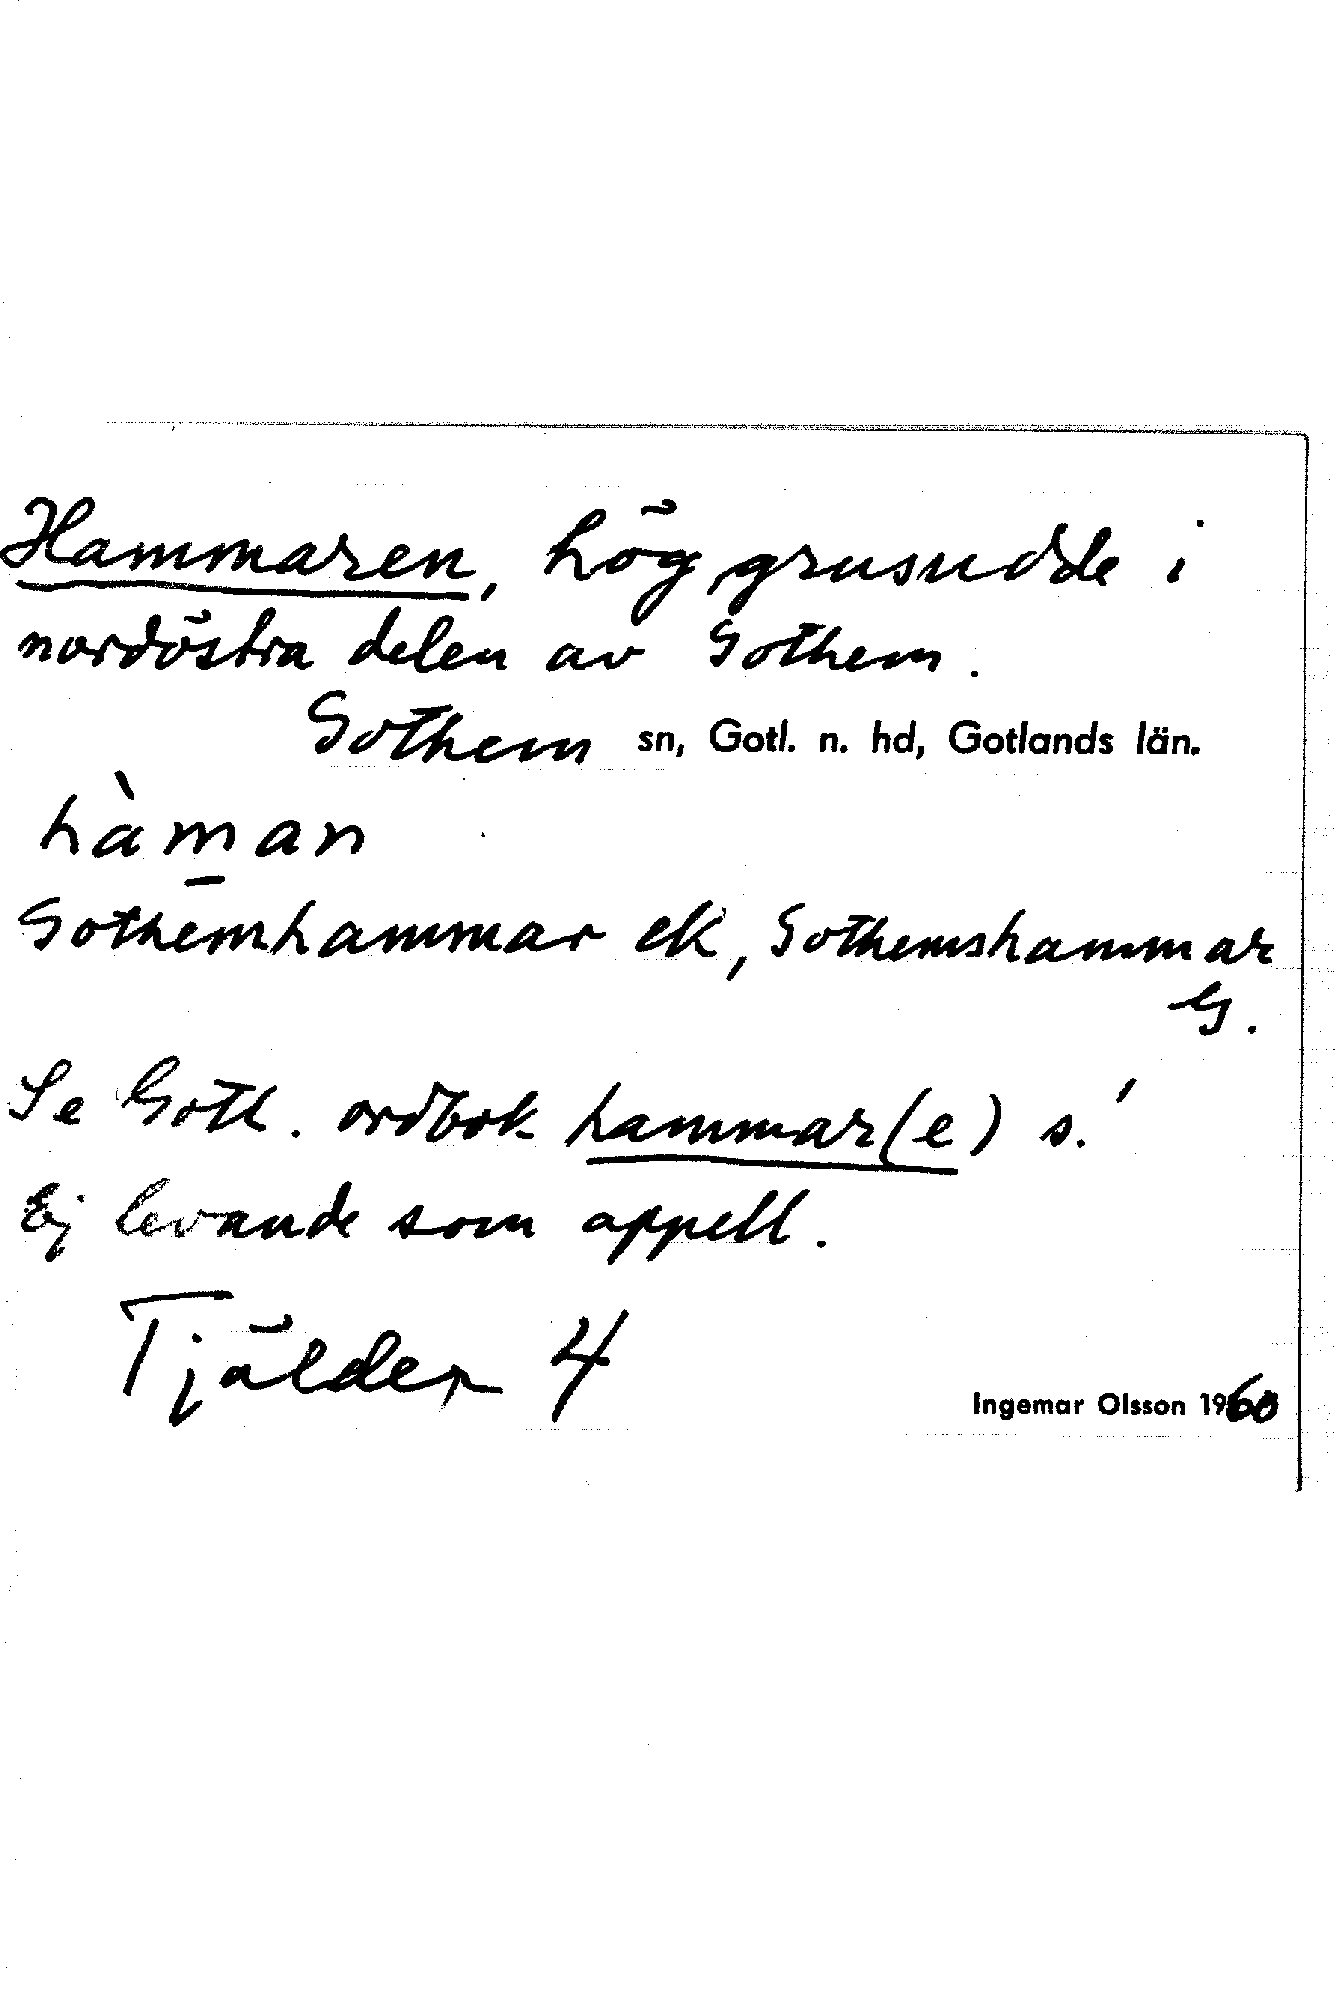 Hammaren, hög grusudde i
nordöstra delen av Gothem.
Gothem sn, Gotl. n. hd, Gotlands län.
hàm̲an
Gothemhammar ek, Gothemshammar
G.
Se Gotl. ordbok hammar(e) s.'
Ej levande som appell.
Tjälder 4
Ingemar Olsson 1960